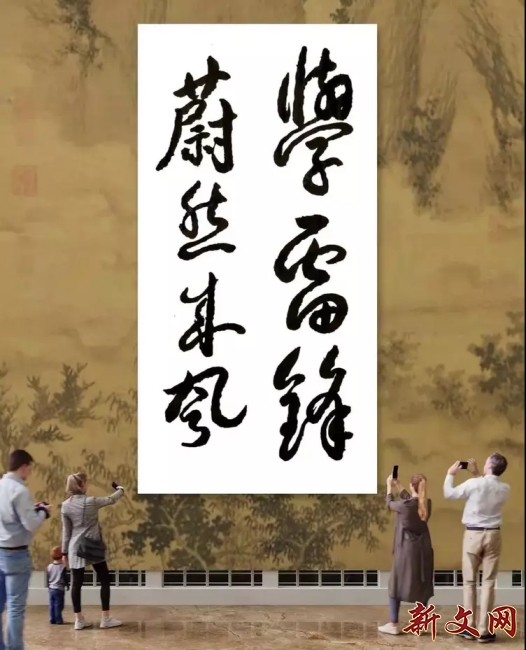 學雷鋒
蔚然成風
新文网